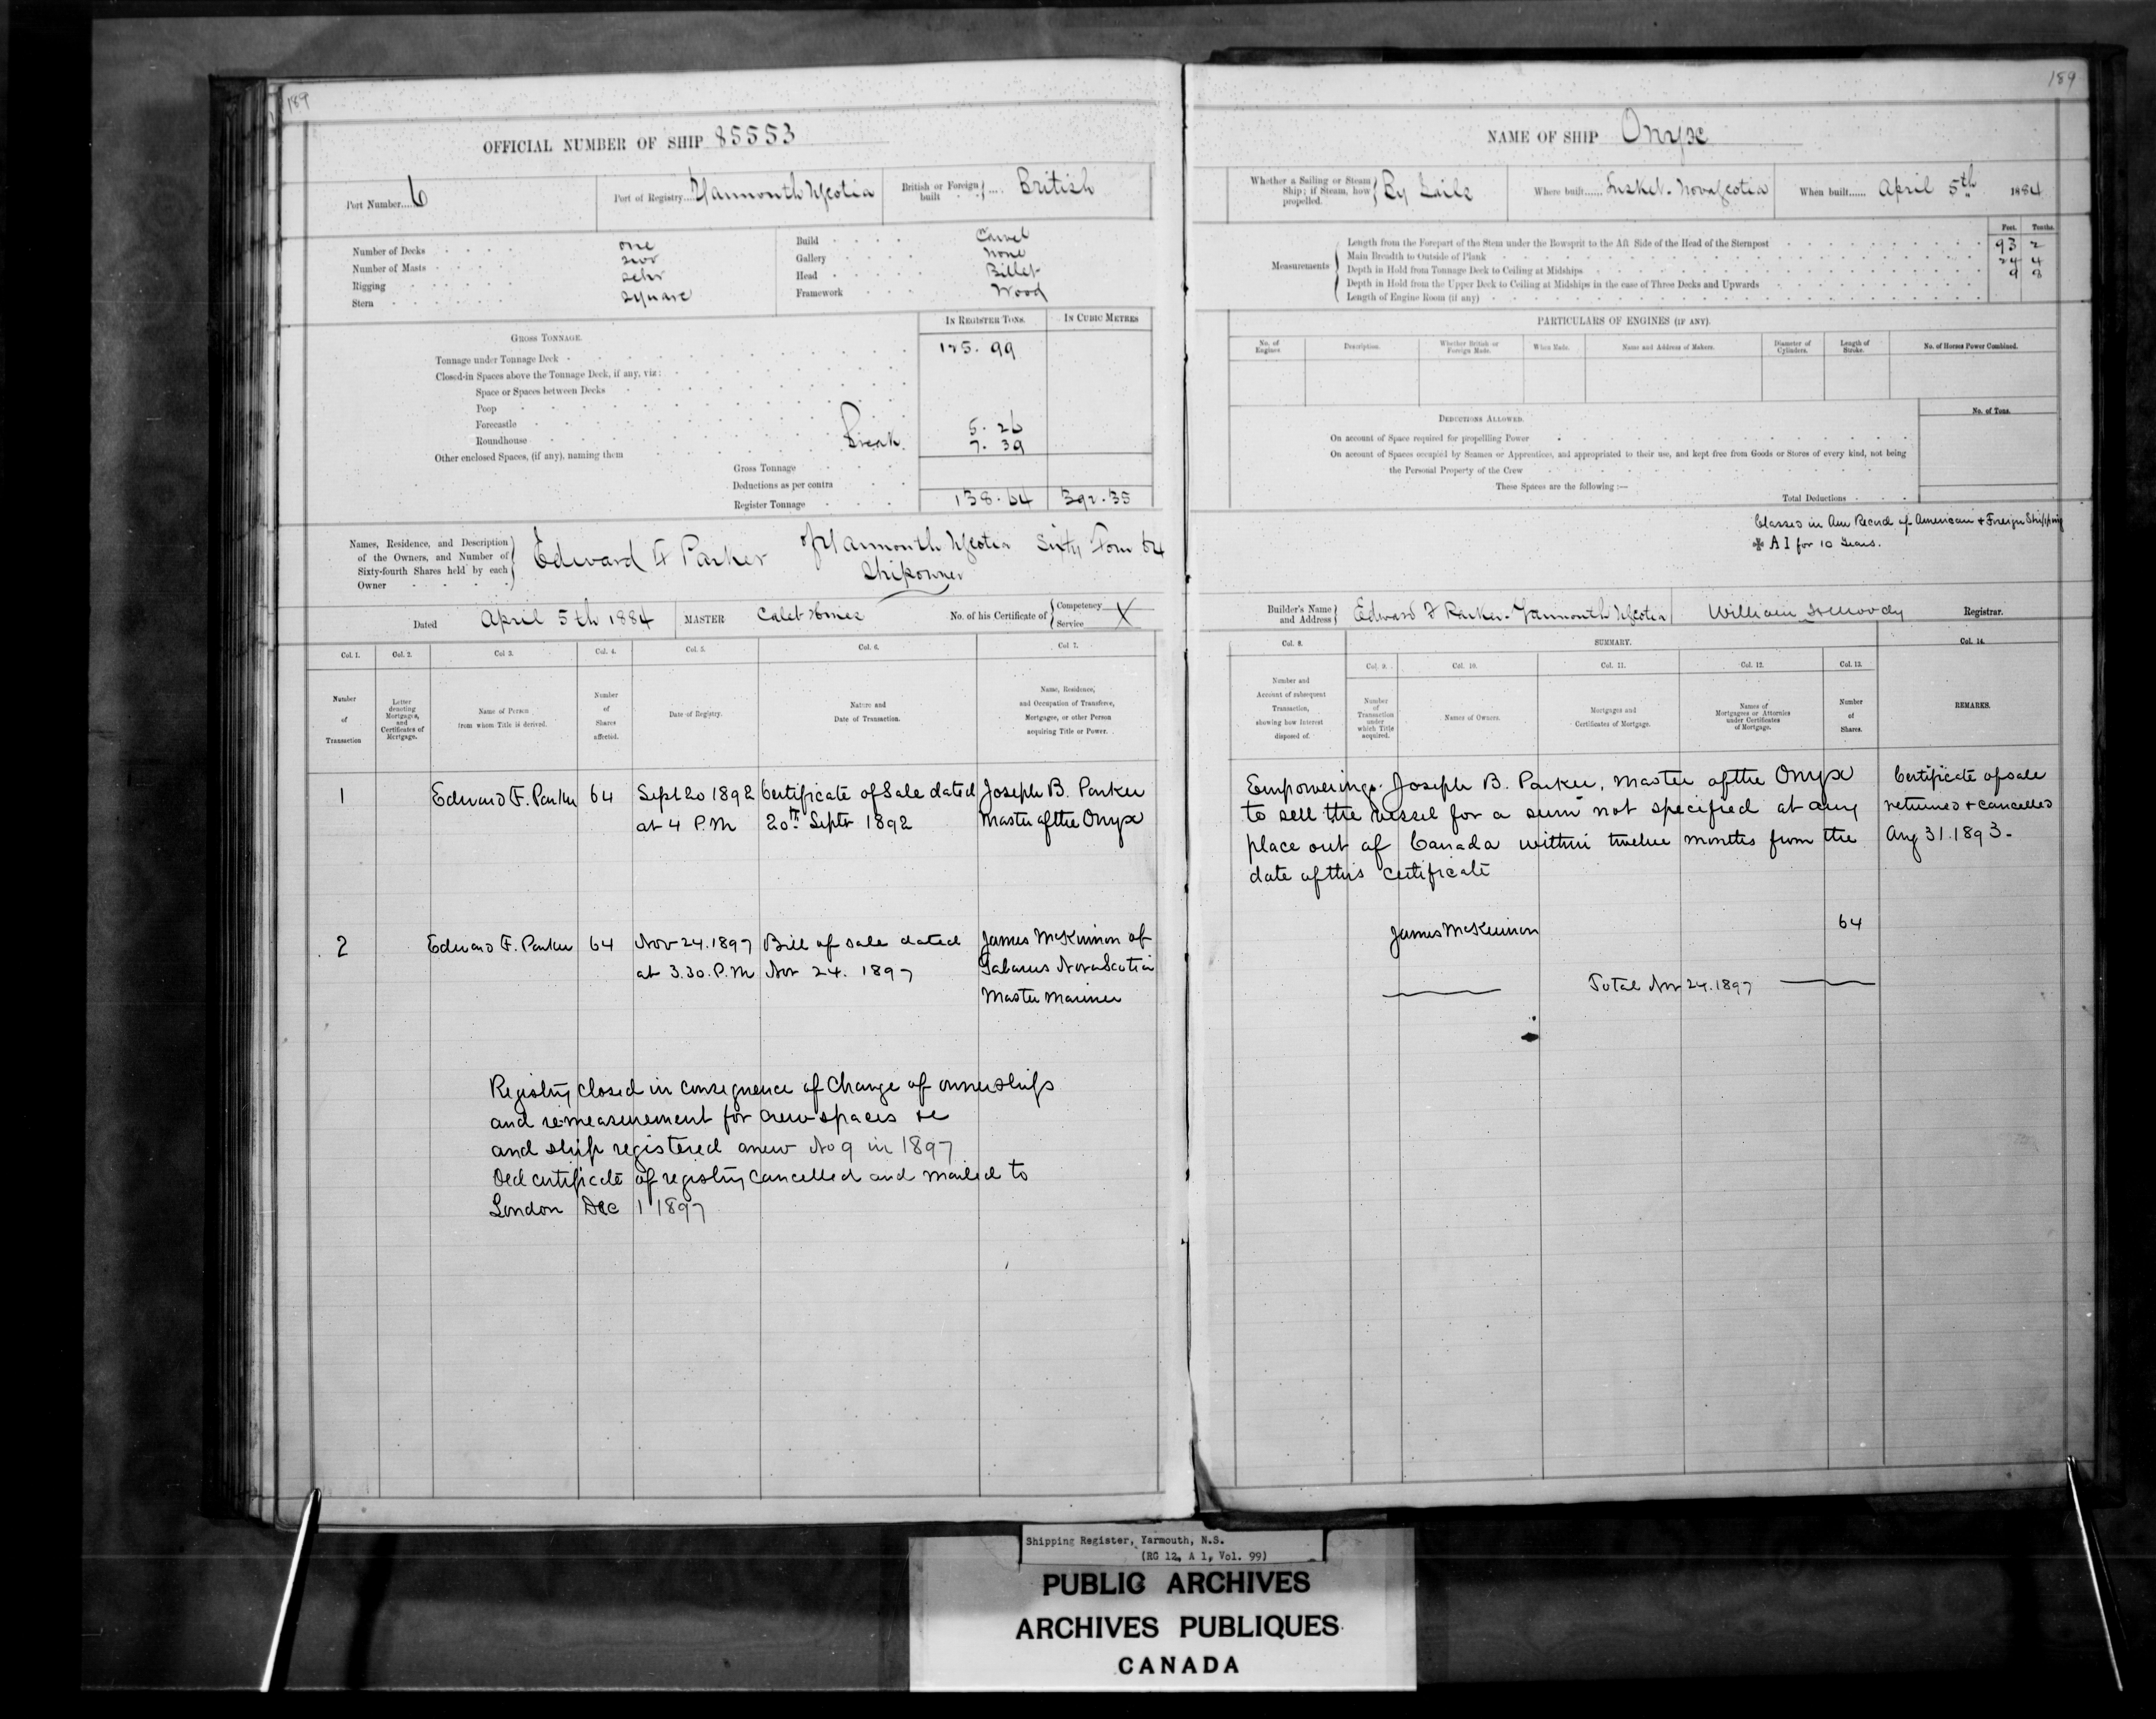 189
OFFICIAL NUMBER OF SHIP 85553
Port Number.... 6
Port of Registry.... Yarmouth NScotia
British or Foreign built .... British
Number of Decks one
Number of Masts two
Rigging schr
Stern square
Build Carvel
Gallery None
Head Billet
Framework Wood
GROSS TONNAGE.
IN REGISTER TONS.
IN CUBIC METRES
Tonnage under Tonnage Deck 125.99
Closed-in Spaces above the Tonnage Deck, if any, viz:
Space or Spaces between Decks
Poop
Forecastle
Roundhouse 5.26
Other enclosed Spaces, (if any), naming them Break. 7.39
Gross Tonnage
Deductions as per contra
Register Tonnage 138.64 392.35
Names, Residence, and Description of the Owners, and Number of Sixty-fourth Shares held by each Owner
Edward F Parker of Yarmouth NScotia Sixty Four 64
Shipowner
Dated April 5th 1884
MASTER
No. of his Certificate of Competency Service X
Col. 1. Number of Transaction
Col. 2. Letter denoting Mortgages, and Certificates of Mortgage.
Col 3. Name of Person from whom Title is derived.
Col. 4. Number of Shares affected.
Col. 5. Date of Registry.
Col. 6. Nature and Date of Transaction.
Col 7. Name, Residence, and Occupation of Transferee, Mortgagee, or other Person acquiring Title or Power.
1 Edward F. Parker 64 Sept 20 1892 Certificate of Sale dated Joseph B. Parker
at 4 P.M 20th Septr 1892 Master of the Onyx
2 Edward F. Parker 64 Nov 24.1897 Bill of Sale dated James McKinnon of
at 3.30.P.M Nov 24. 1897 Gabarus Nova Scotia
Master Mariner
Registry closed in consequence of Change of ownership
and remeasurement for crew spaces &c
and ship registered anew No 9 in 1897
Old certificate of registry cancelled and mailed to
London Dec 1 1897
189
NAME OF SHIP Onyx
Whether a Sailing or Steam Ship; if Steam, how propelled. By Sails
Where built...... Tusket. Nova Scotia
When built...... April 5th 1884
Measurements
Feet. Tenths.
Length from the Forepart of the Stem under the Bowsprit to the Aft Side of the Head of the Sternpost 93 2
Main Breadth to Outside of Plank 24 4
Depth in Hold from Tonnage Deck to Ceiling at Midships 9 8
Depth in Hold from the Upper Deck to Ceiling at Midships in the case of Three Decks and Upwards
Length of Engine Room (if any)
PARTICULARS OF ENGINES (IF ANY).
No. of Engines
Description.
Whether British or Foreign Made.
When Made.
Name and Address of Makers.
Diameter of Cylinders.
Length of Stroke.
No. of Horses Power Combined.
DEDUCTIONS ALLOWED.
No. of Tons.
On account of Space required for propelling Power
On account of Spaces occupied by Seamen or Apprentices, and appropriated to their use, and kept free from Goods or Stores of every kind, not being
the Personal Property of the Crew
These Spaces are the following :—
Total Deductions
Classed in Am Record of American & Foreign Shipping
✠ A1 for 10 Years.
Builder's Name and Address Edward F Parker. Yarmouth NScotia
William H Moody Registrar.
Col. 8. Number and Account of subsequent Transaction, showing how Interest disposed of.
SUMMARY.
Col. 9. Number of Transaction under which Title acquired.
Col. 10. Names of Owners.
Col. 11. Mortgages and Certificates of Mortgage.
Col. 12. Names of Mortgagees or Attornies under Certificates of Mortgage.
Col. 13. Number of Shares.
Col. 14. REMARKS.
Empowering Joseph B. Parker, Master of the Onyx
to sell the vessel for a sum not specified at any
place out of Canada within twelve months from the
date of this certificate
Certificate of sale
returned & cancelled
Aug 31.1893.
James McKinnon 64
Total Nov 24.1897
Shipping Register, Yarmouth, N.S.
(RG 12, A 1, Vol. 99)
PUBLIC ARCHIVES
ARCHIVES PUBLIQUES
CANADA